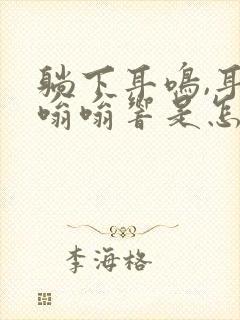 躺下耳鸣,耳
嗡嗡响是怎
李海格